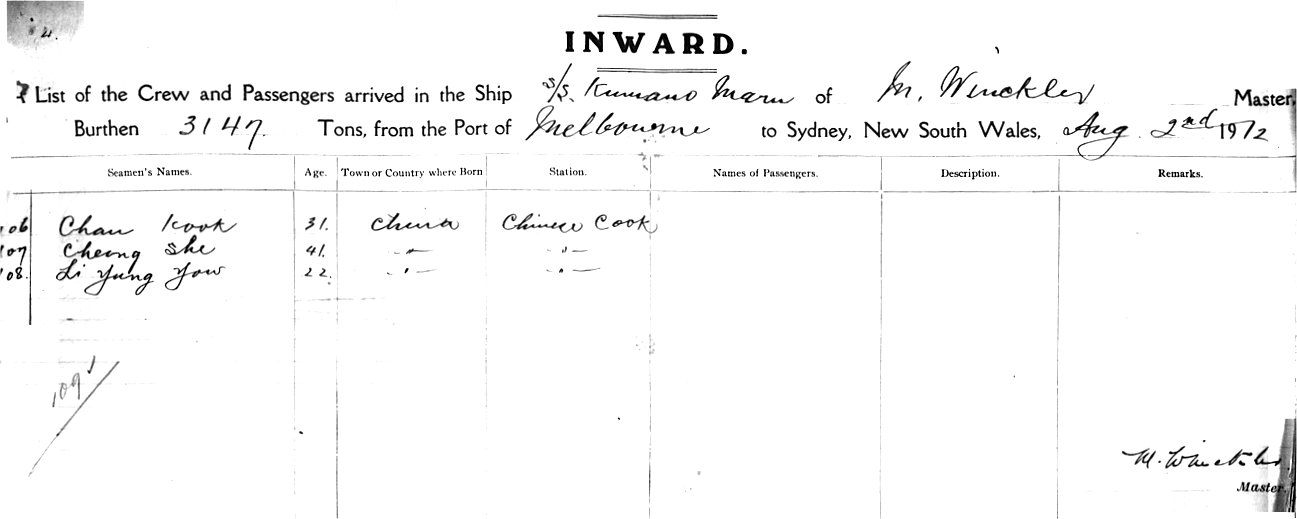 4.
INWARD.
List of the Crew and Passengers arrived in the Ship s/s. Kumano Maru of M. Winckler Master,
Burthen 3147. Tons, from the Port of Melbourne to Sydney, New South Wales, Aug 2nd 1912
Seamen's Names. Age. Town or Country where Born Station. Names of Passengers. Description. Remarks.
106 Chan Kook 31. China Chinese Cook
107 Cheong She 41. -"- -"-
108. Li Yung Yow 22. -"- -"-
109
M. Winckler
Master.